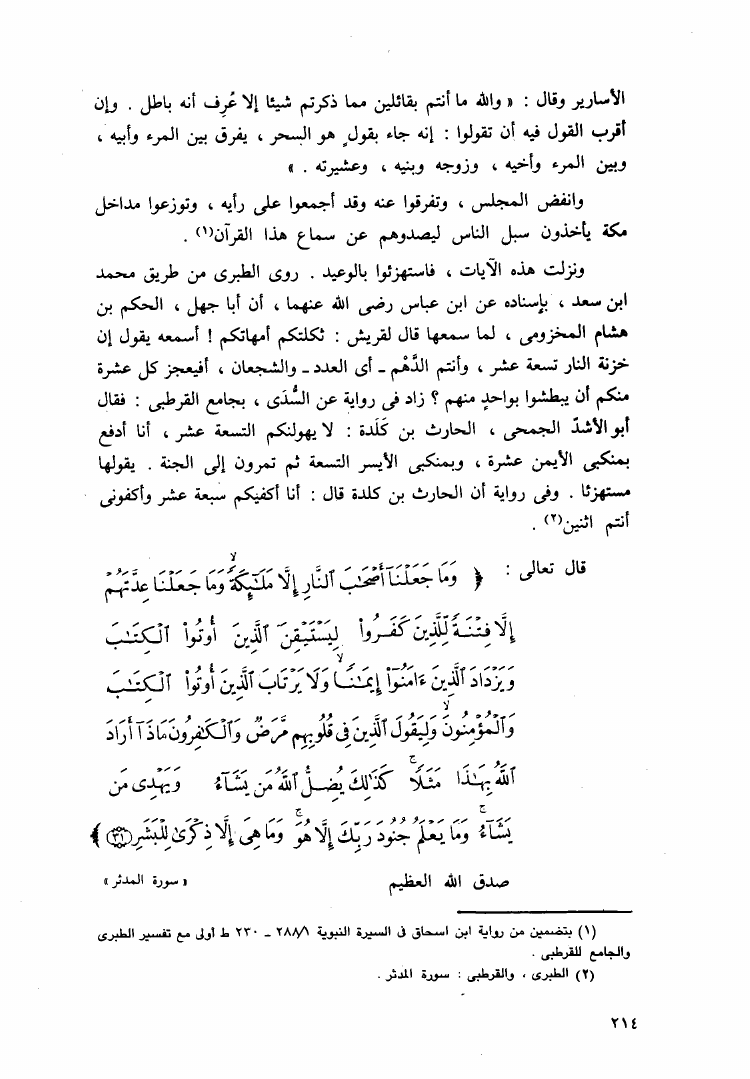 الأسارير وقال : « والله ما أنتم بقائلين مما ذكرتم شيئا إلا عُرِف أنه باطل . وإن
أقرب القول فيه أن تقولوا : إنه جاء بقولٍ هو السحر ، يفرق بين المرء وأبيه ،
وبين المرء وأخيه ، وزوجه وبنيه ، وعشيرته . »
وانفض المجلس ، وتفرقوا عنه وقد أجمعوا على رأيه ، وتوزعوا مداخل
مكة يأخذون سبل الناس ليصدوهم عن سماع هذا القرآن(١) .
ونزلت هذه الآيات ، فاستهزئوا بالوعيد . روى الطبرى من طريق محمد
ابن سعد ، بإسناده عن ابن عباس رضى الله عنهما ، أن أبا جهل ، الحكم بن
هشام المخزومى ، لما سمعها قال لقريش : ثكلتكم أمهاتكم ! أسمعه يقول إن
خزنة النار تسعة عشر ، وأنتم الدَّهْم ـ أى العدد ـ والشجعان ، أفيعجز كل عشرة
منكم أن يبطشوا بواحدٍ منهم ؟ زاد فى رواية عن السُّدَى ، بجامع القرطبى : فقال
أبو الأشدّ الجمحى ، الحارث بن كَلَدة : لا يهولنكم التسعة عشر ، أنا أدفع
بمنكبى الأيمن عشرة ، وبمنكبى الأيسر التسعة ثم تمرون إلى الجنة . يقولها
مستهزئا . وفى رواية أن الحارث بن كلدة قال : أنا أكفيكم سبعة عشر وأكفونى
أنتم اثنين(٢) .
قال تعالى : ﴿ وَمَا جَعَلْنَآ أَصْحَٰبَ ٱلنَّارِ إِلَّا مَلَٰٓئِكَةًۙ وَمَا جَعَلْنَا عِدَّتَهُمْ
إِلَّا فِتْنَةً لِّلَّذِينَ كَفَرُوا۟ لِيَسْتَيْقِنَ ٱلَّذِينَ أُوتُوا۟ ٱلْكِتَٰبَ
وَيَزْدَادَ ٱلَّذِينَ ءَامَنُوٓا۟ إِيمَٰنًاۙ وَلَا يَرْتَابَ ٱلَّذِينَ أُوتُوا۟ ٱلْكِتَٰبَ
وَٱلْمُؤْمِنُونَۙ وَلِيَقُولَ ٱلَّذِينَ فِى قُلُوبِهِم مَّرَضٌ وَٱلْكَٰفِرُونَ مَاذَآ أَرَادَ
ٱللَّهُ بِهَٰذَا مَثَلًاۚ كَذَٰلِكَ يُضِلُّ ٱللَّهُ مَن يَشَآءُ وَيَهْدِى مَن
يَشَآءُۚ وَمَا يَعْلَمُ جُنُودَ رَبِّكَ إِلَّا هُوَۚ وَمَا هِىَ إِلَّا ذِكْرَىٰ لِلْبَشَرِ ٣١ ﴾
صدق الله العظيم « سورة المدثر »
(١) بتضمين من رواية ابن اسحاق فى السيرة النبوية ٢٨٨/١ ـ ٢٣٠ ط أولى مع تفسير الطبرى
والجامع للقرطبى .
(٢) الطبرى ، والقرطبى : سورة المدثر .
٢١٤